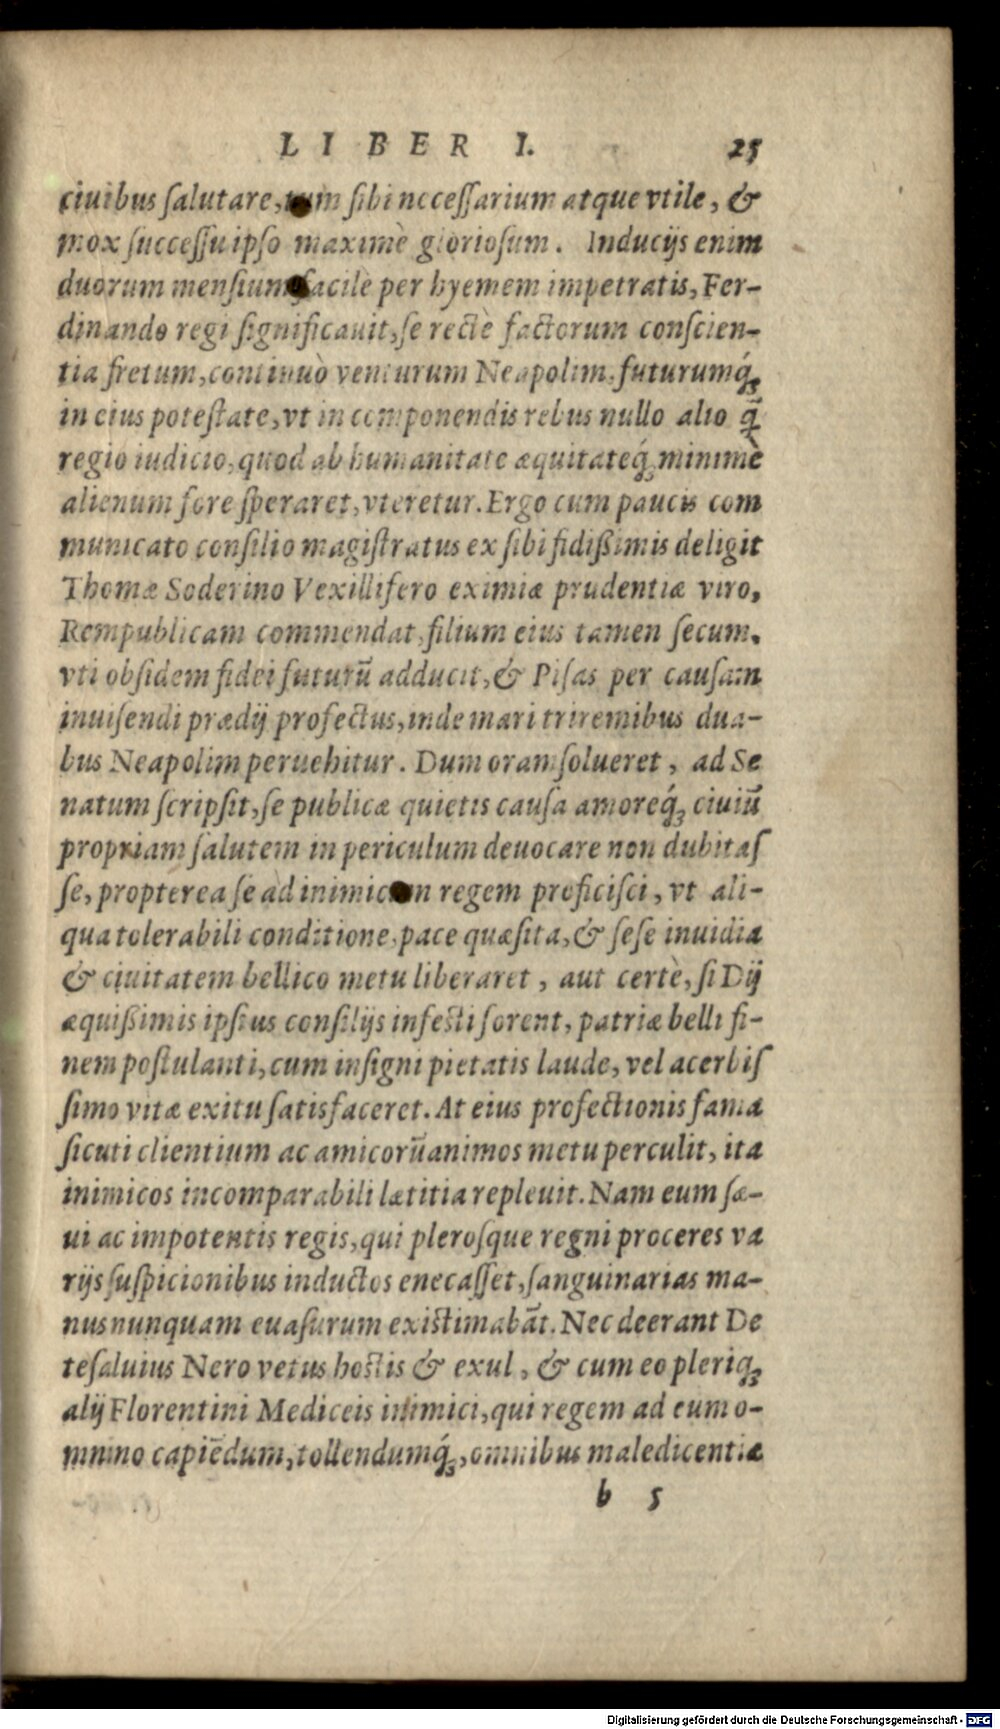 LIBER I. 25
ciuibus ſalutare, tum ſibi neceſſarium atque vtile, &
mox ſucceſſu ipſo maximè glorioſum. Inducijs enim
duorum menſium facilè per hyemem impetratis, Fer-
dinando regi ſignificauit, ſe rectè factorum conſcien-
tia fretum, continuò venturum Neapolim, futurumq́ꝫ
in eius poteſtate, vt in componendis rebus nullo alio q̃
regio iudicio, quod ab humanitate æquitateq́ꝫ minimè
alienum fore ſperaret, vteretur. Ergo cum paucis com
municato conſilio magiſtratus ex ſibi fidißimis deligit
Thomæ Soderino Vexillifero eximiæ prudentiæ viro,
Rempublicam commendat, filium eius tamen ſecum,
vti obſidem fidei futurū adducit, & Piſas per cauſam
inuiſendi prædij profectus, inde mari triremibus dua-
bus Neapolim peruehitur. Dum oram ſolueret, ad Se
natum ſcripſit, ſe publicæ quietis cauſa amoreq́ꝫ ciuiū
propriam ſalutem in periculum deuocare non dubitaſ
ſe, propterea ſe ad inimicum regem proficiſci, vt ali-
qua tolerabili conditione, pace quæſita, & ſeſe inuidia
& ciuitatem bellico metu liberaret, aut certè, ſi Dij
æquißimis ipſius conſilijs infeſti forent, patriæ belli fi-
nem poſtulanti, cum inſigni pietatis laude, vel acerbiſ
ſimo vitæ exitu ſatisfaceret. At eius profectionis fama
ſicuti clientium ac amicorū animos metu perculit, ita
inimicos incomparabili lætitia repleuit. Nam eum ſæ-
ui ac impotentis regis, qui pleroſque regni proceres va
rijs ſuſpicionibus inductos enecaſſet, ſanguinarias ma-
nus nunquam euaſurum exiſtimabāt. Nec deerant De
teſaluius Nero vetus hoſtis & exul, & cum eo pleriqꝫ
alij Florentini Mediceis inimici, qui regem ad eum o-
mnino capiēdum, tollendumq́ꝫ, omnibus maledicentiæ
b 5
Digitalisierung gefördert durch die Deutsche Forschungsgemeinschaft - DFG